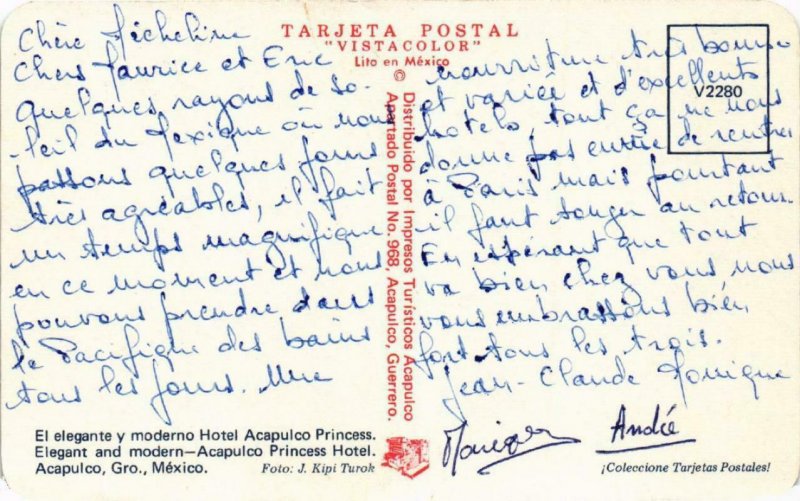 TARJETA POSTAL
"VISTACOLOR"
Lito en México
©
V2280
Chère Micheline
Chers Maurice et Eric
Quelques rayons de so-
leil du Mexique où nous
passons quelques jours
très agréables, il fait
un temps magnifique
en ce moment et nous
pouvons prendre dans
le Pacifique des bains
tous les jours. Une
nourriture très bonne
et variée et d'excellents
hotels tout ça ne nous
donne pas envie de rentrer
à Paris mais pourtant
il faut songer au retour.
En espérant que tout
va bien chez vous nous
vous embrassons bien
fort tous les trois.
Jean-Claude Monique
André
Distribuido por Impresos Turísticos Acapulco
Apartado Postal No. 968, Acapulco, Guerrero.
El elegante y moderno Hotel Acapulco Princess.
Elegant and modern—Acapulco Princess Hotel.
Acapulco, Gro., México.
Foto: J. Kipi Turok
¡Coleccione Tarjetas Postales!